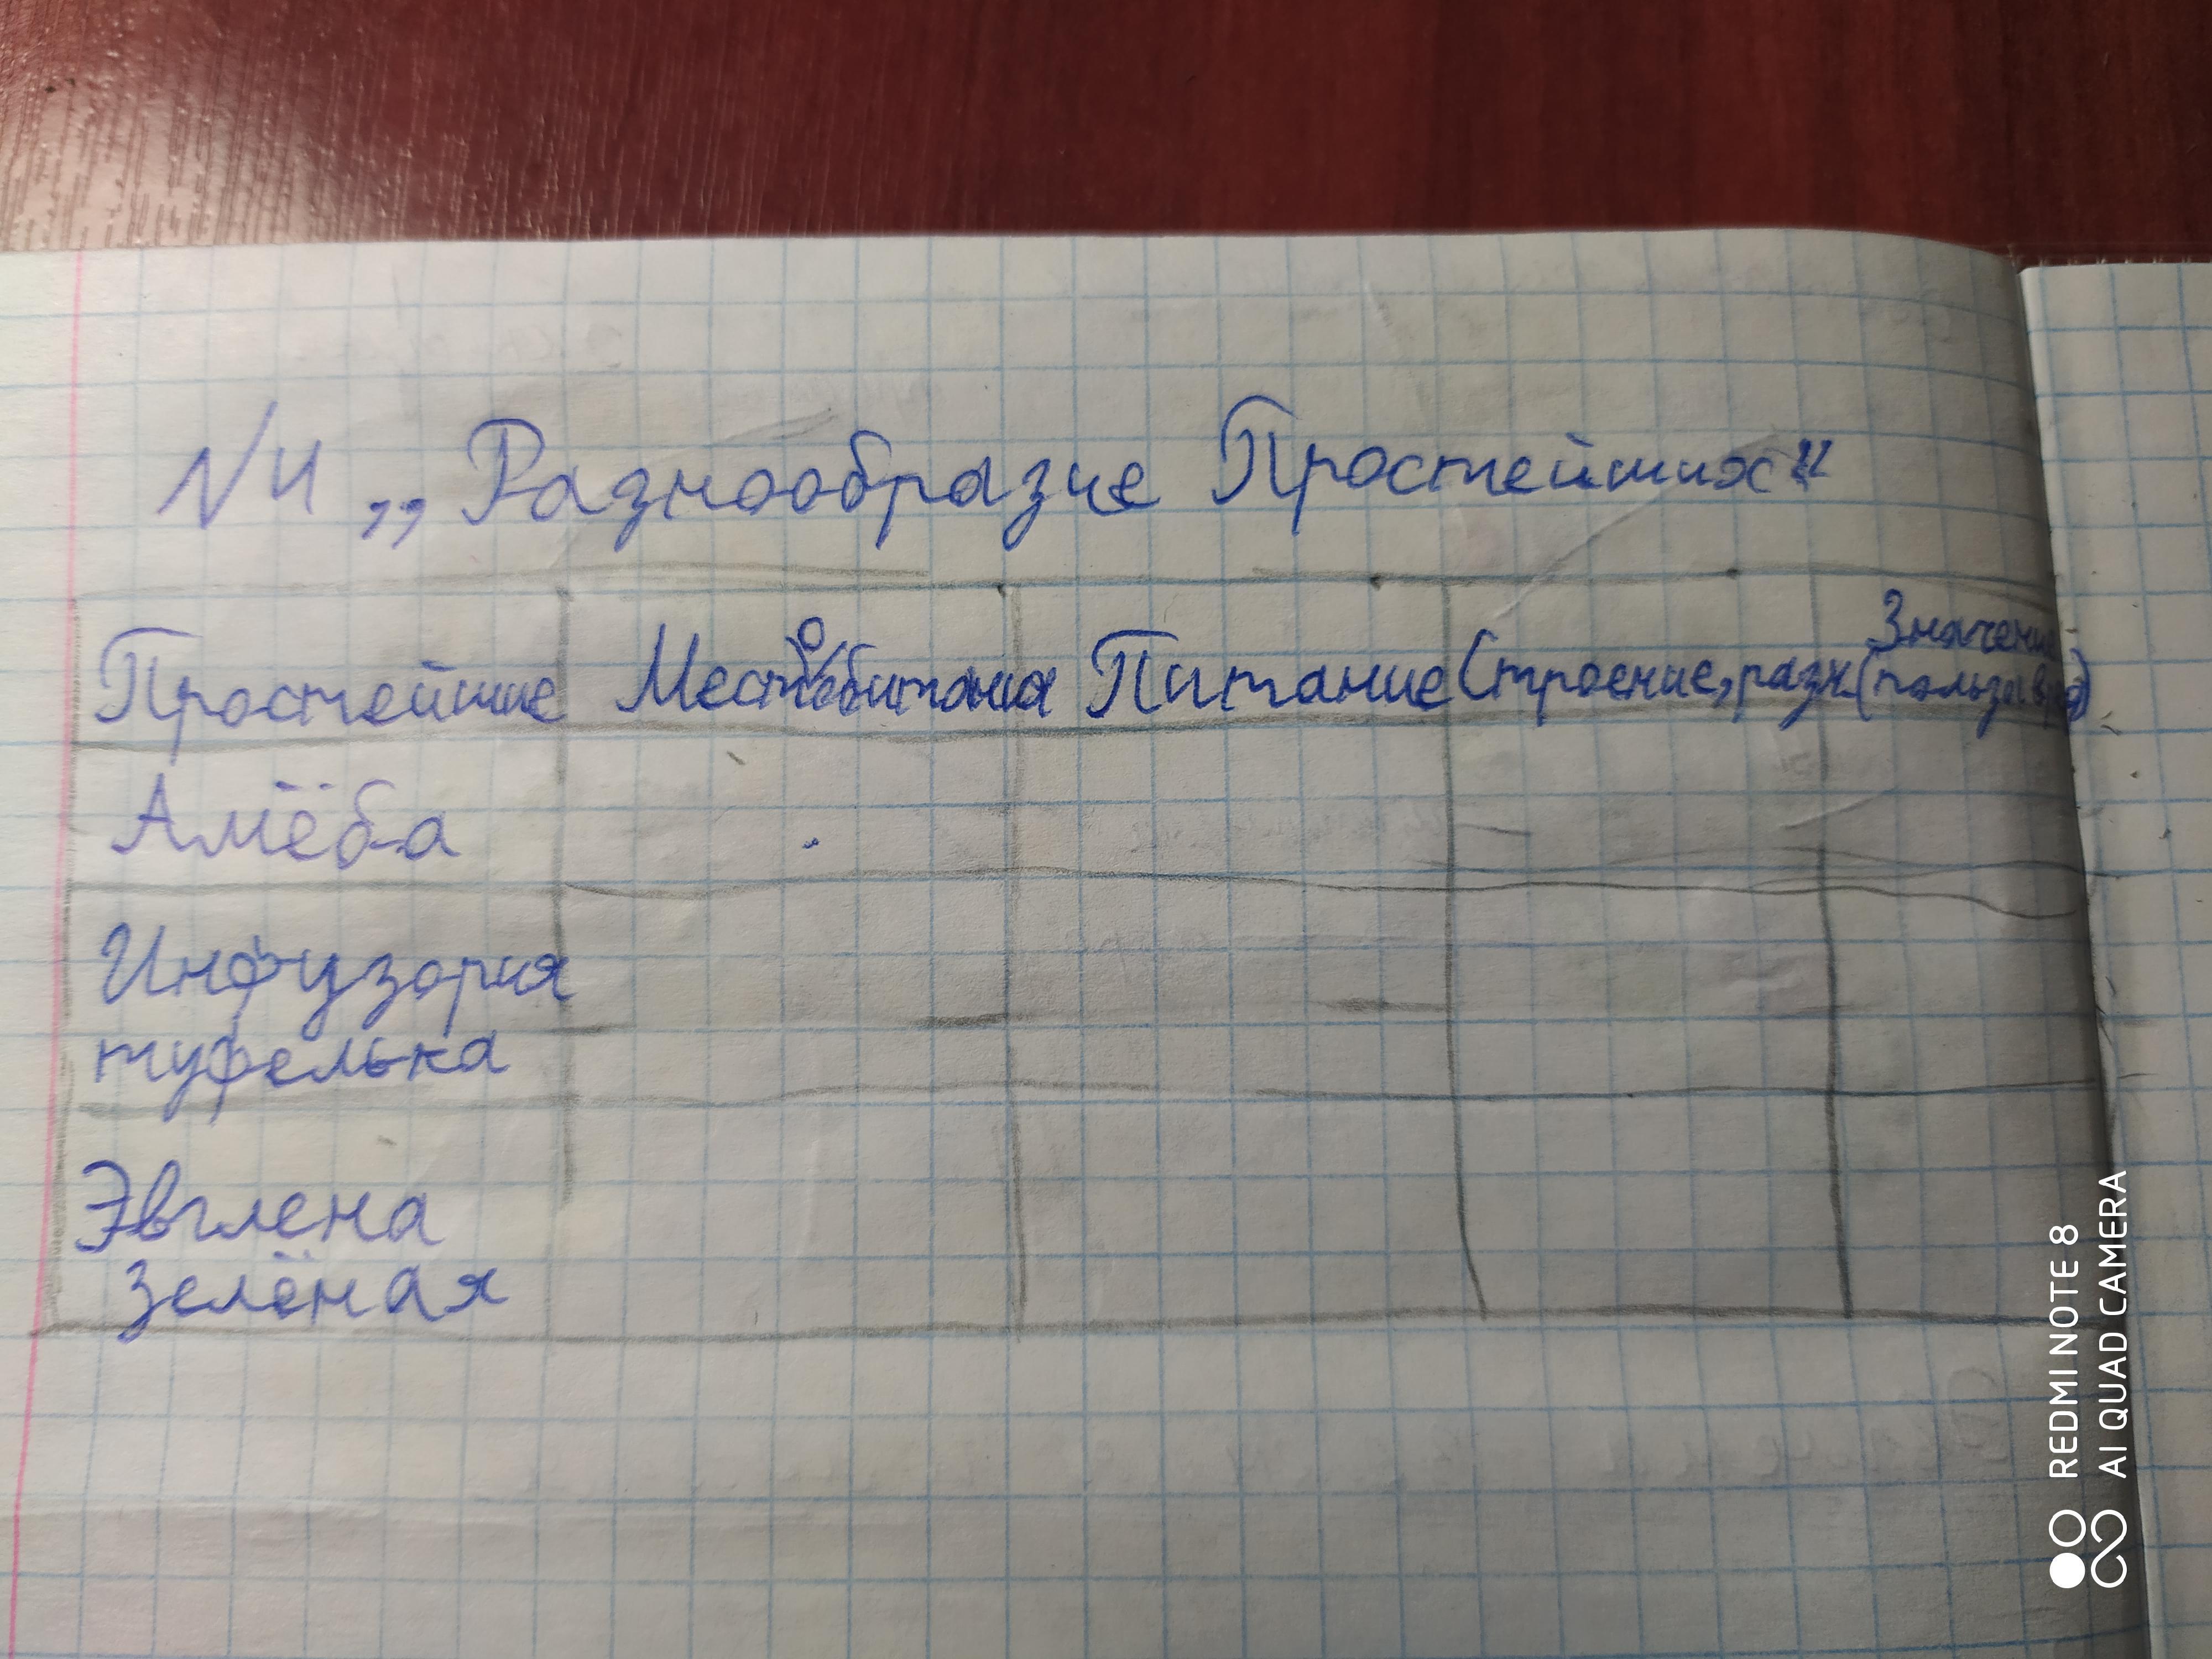 №4 ,,Разнообразие Простейших"
Простейшие Место обитания Питание Строение, разн. Значение (польза вред)
Амёба
Инфузория
туфелька
Эвглена
зелёная
REDMI NOTE 8
AI QUAD CAMERA